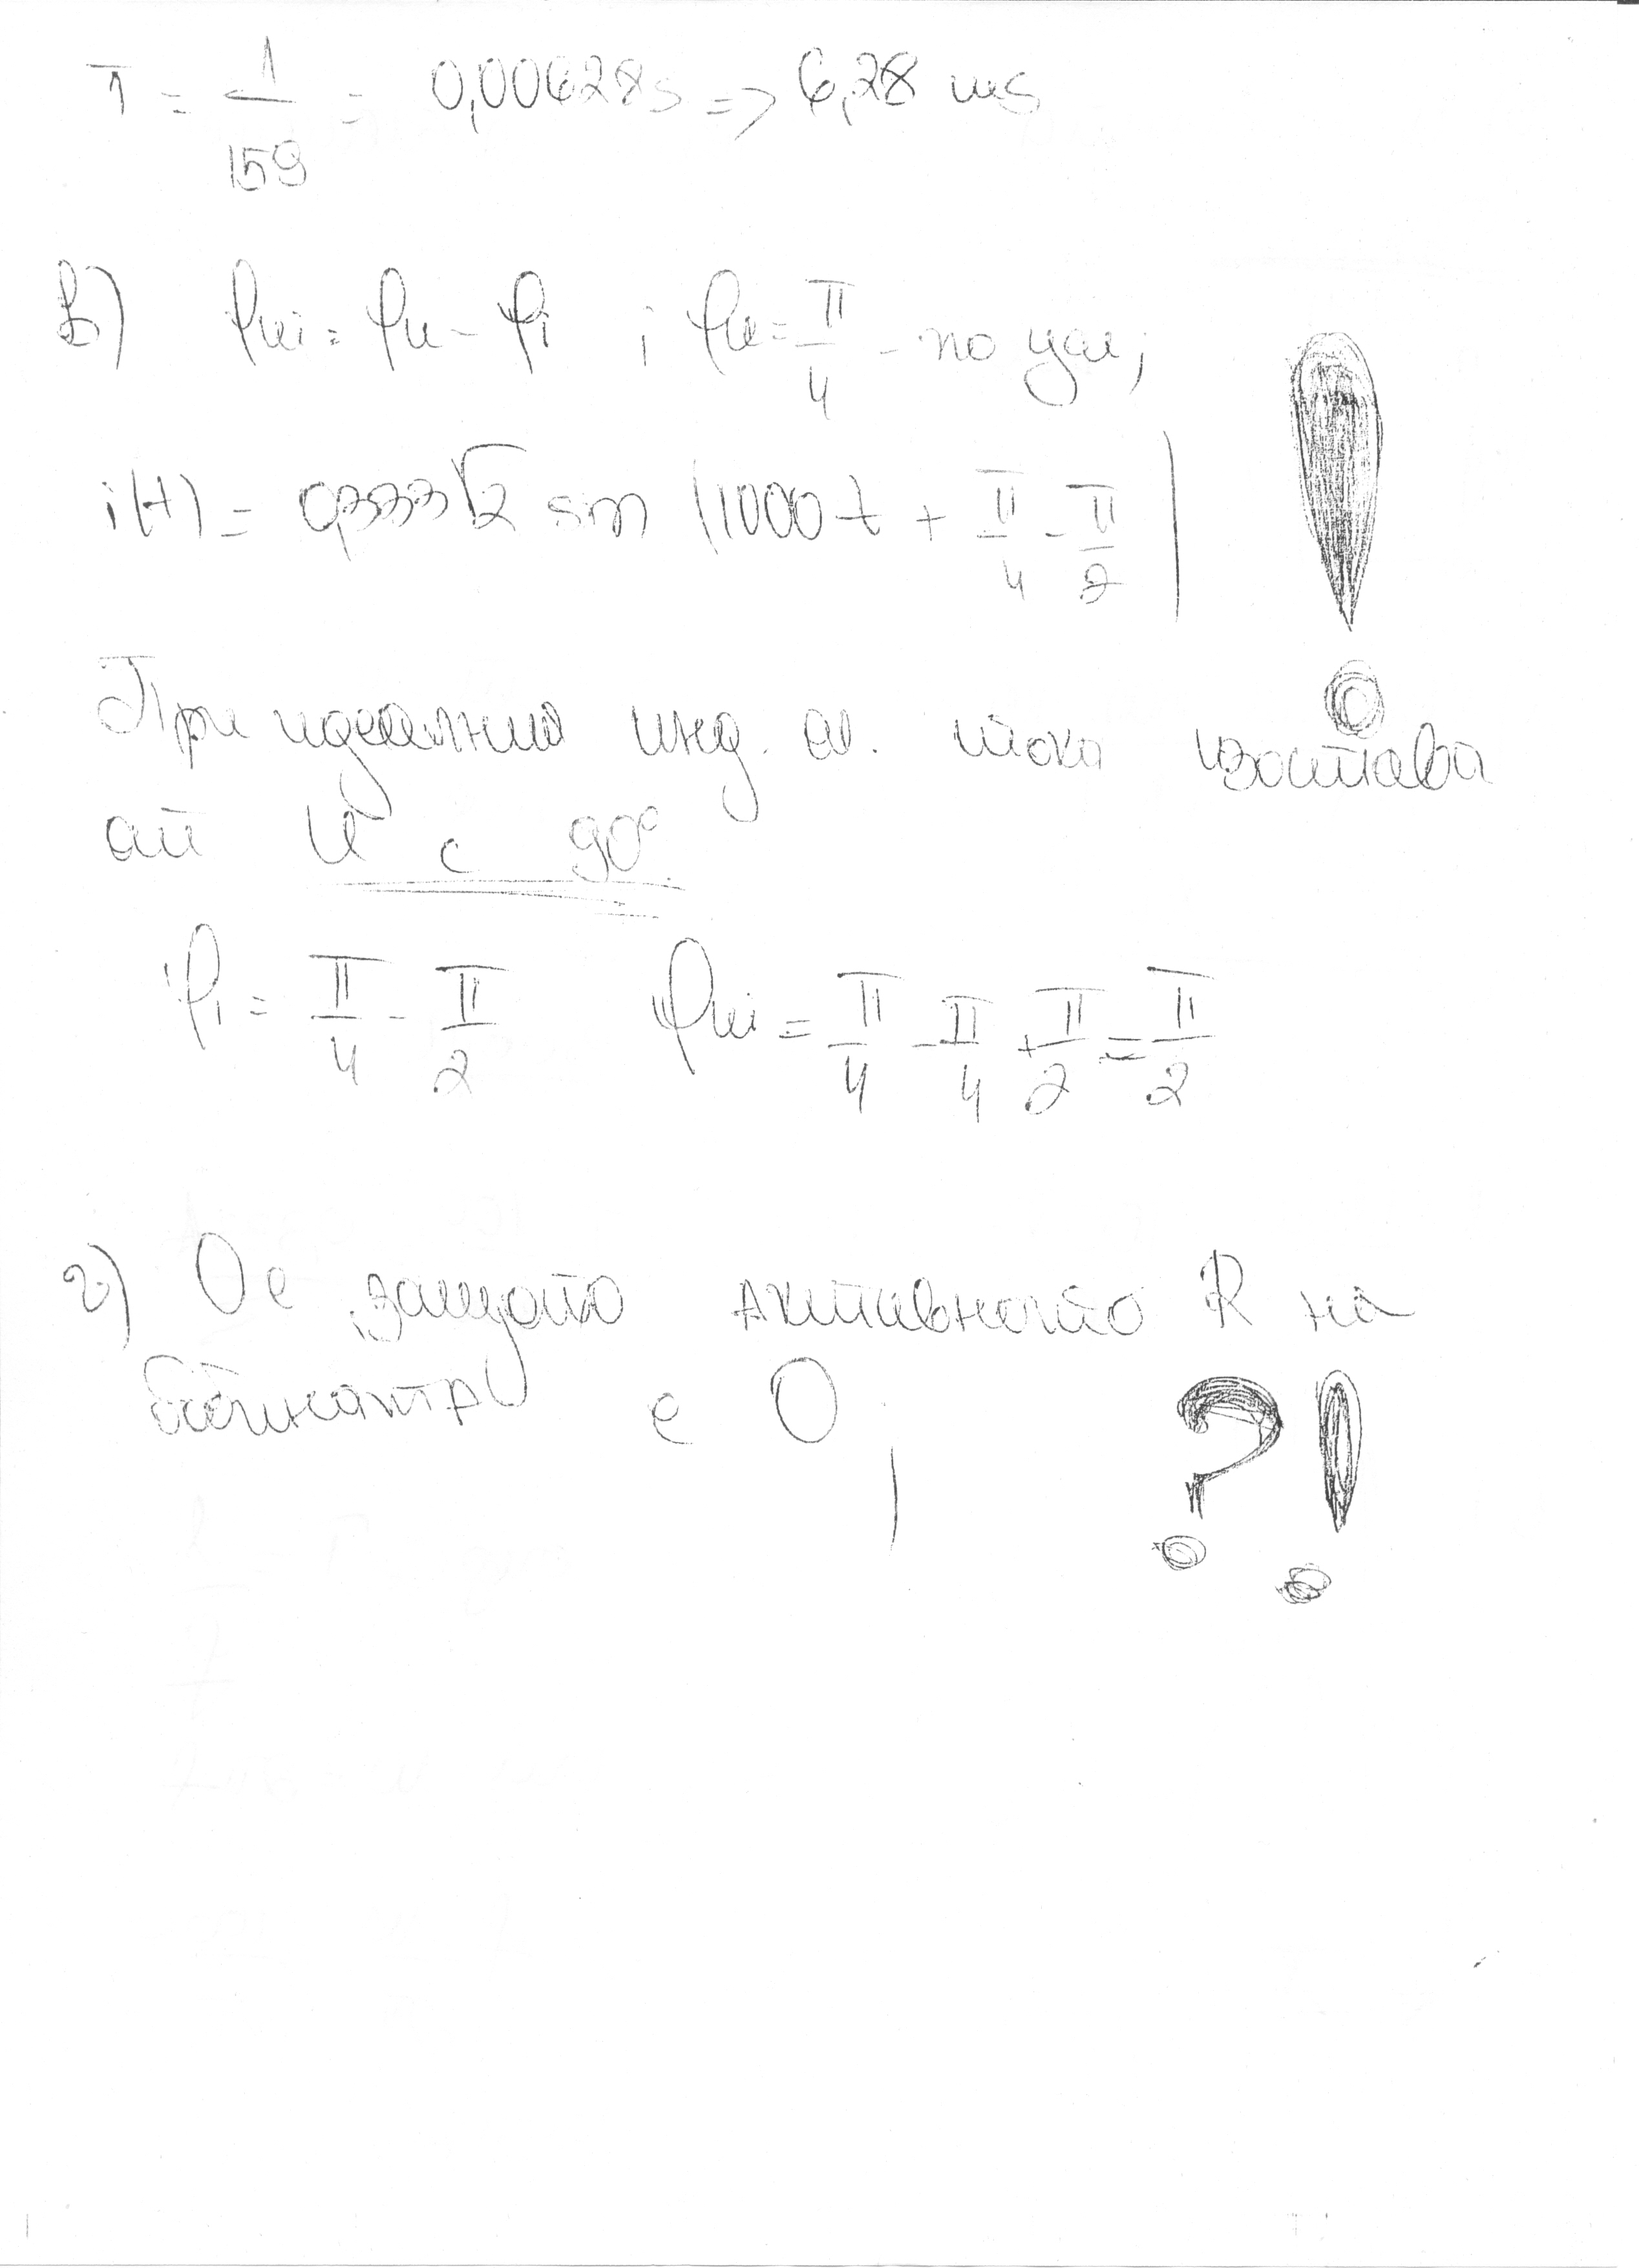 T = 1/159 = 0,00628s => 6,28 ms
в) φui = φu - φi ; φu = π/4 - по усл;
i(t) = 0,333√2 sin (1000t + π/4 - π/2)
При идеалния инд. ел. тока изостава
от U с 90°
φi = π/4 - π/2 φui = π/4 - π/4 + π/2 = π/2
г) 0 е защото активното R на
е 0;
?!